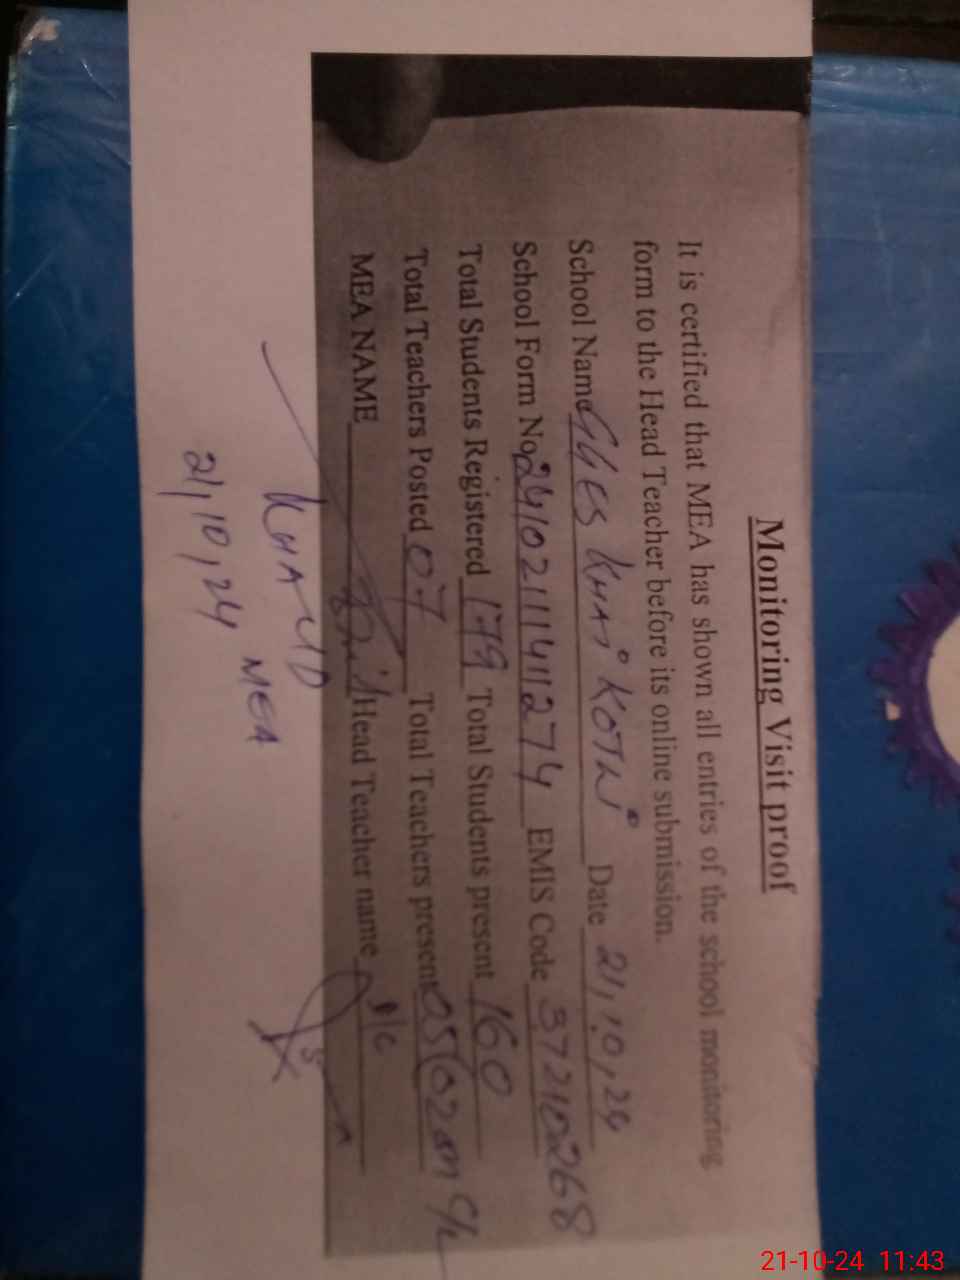 Monitoring Visit proof
It is certified that MEA has shown all entries of the school monitoring
form to the Head Teacher before its online submission.
School Name GGES KHAI KOTLI Date 21,10,24
School Form No 24102111411274 EMIS Code 37210268
Total Students Registered 179 Total Students present 160
Total Teachers Posted 07 Total Teachers present 05(02 on C/L
MEA NAME Head Teacher name I/C
KHALID
MEA
21,10,24
21-10-24 11:43